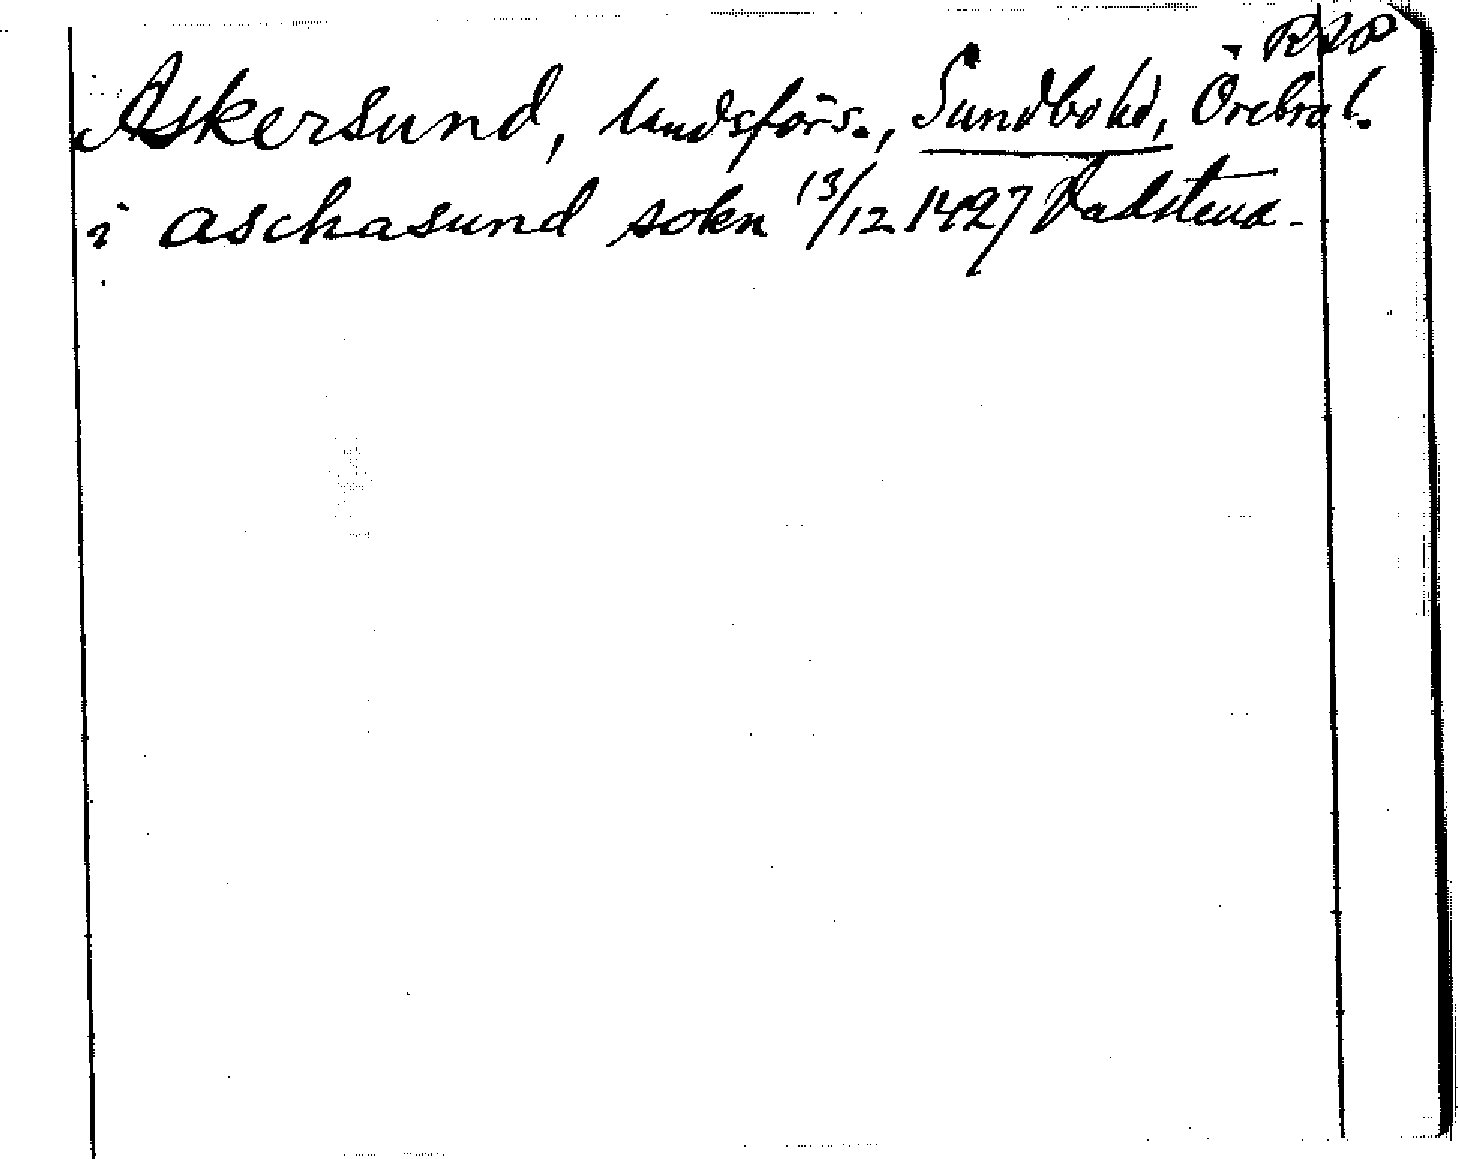 RAP
Askersund, landsförs., Sundbo hd, Örebro l.
i aschasund sokn 13/12 1427 Vadstena